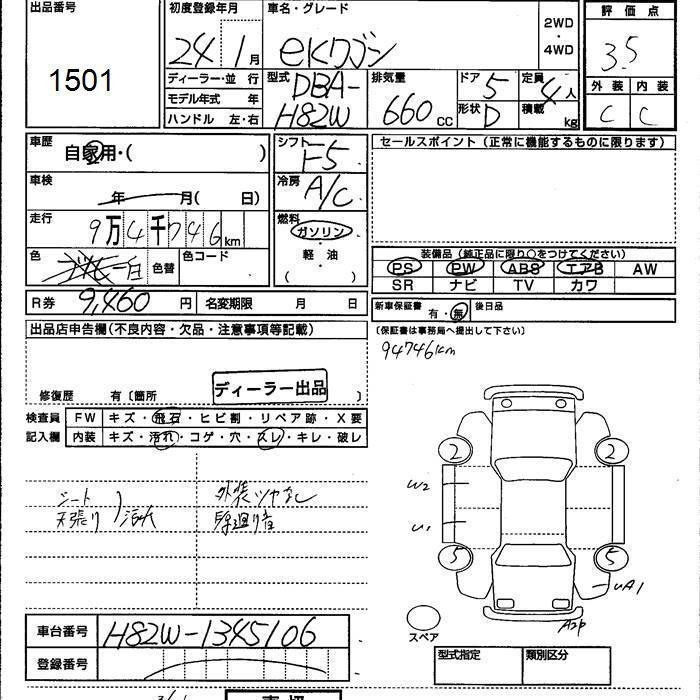 出品番号 初度登録年月 車名・グレード 2WD 評価点
1501 24 1月 eKワゴン ・ 3.5
4WD
ディーラー・並行 型式 DBA- 排気量 ドア 5 定員 4人 外装 内装
モデル年式 年 H82W 660cc 形状 D 積載 kg C C
ハンドル 左・右
車歴 自家用・( ) シフト F5 セールスポイント(正常に機能するものに限ります)
車検 年 月( 日) 冷房 A/C
走行 9万4千746km 燃料 ガソリン
軽・油
( )
色 白 色替 色コード 装備品(純正品に限り○をつけてください)
PS PW ABS エアB AW
SR ナビ TV カワ
R券 9,460円 名変期限 月 日 新車保証書 有・無 後日品
出品店申告欄(不良内容・欠品・注意事項等記載) (保証書は事務局へ提出して下さい)
94746km
ディーラー出品
修復歴 有〔箇所 〕
検査員 FW キズ・飛石・ヒビ割・リペア跡・X要
記入欄 内装 キズ・汚れ・コゲ・穴・スレ・キレ・破レ
2 2
シート 外装ツヤなし W2
天張り
U1
5 5
UA1
A2P
スペア
車台番号 H82W-1345106
登録番号
型式指定 類別区分